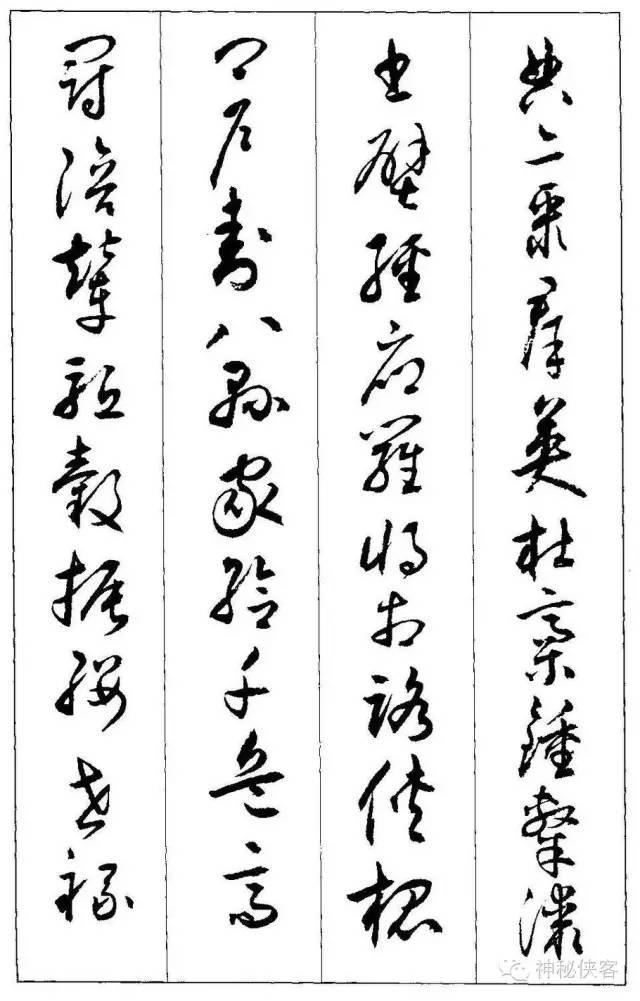 典亦聚群英杜稾鍾隸漆
書壁經府羅將相路俠槐
卿戶封八縣家給千兵高
冠陪輦驅轂振纓世祿
神秘侠客